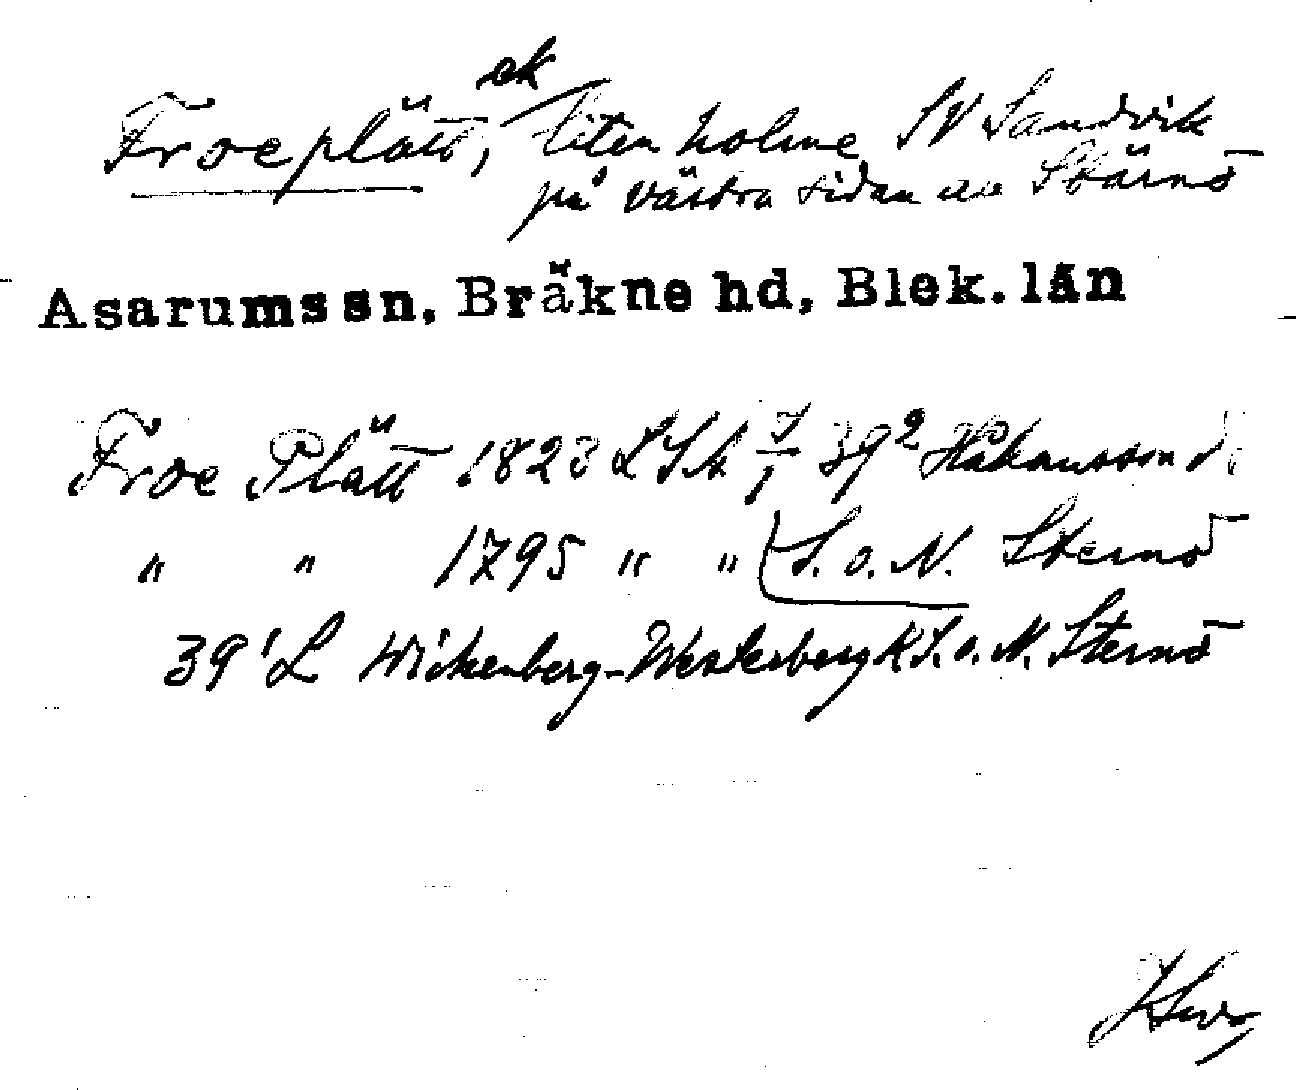 ek
Froeplätt, liten holme SV Sandvik
på västra sidan av Stärnö
Asarums sn, Bräkne hd, Blek. län
Froe Plätt 1823 LSA 39² Håkansson
" " 1795 " " S. o. N. Sternö
39¹ L Wickenberg-Westerberg K S. o. N. Sternö